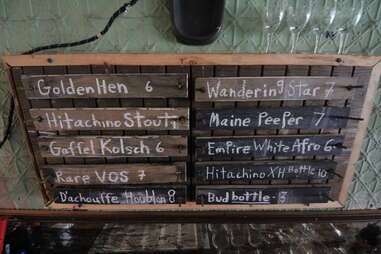 Golden Hen 6
Hitachino Stout 7
Gaffel Kolsch 6
Rare VOS 7
D'achouffe Houblon 8
Wandering Star 7
Maine Peeper 7
Empire White Afro 6
Hitachino XH Bottle 10
Bud bottle